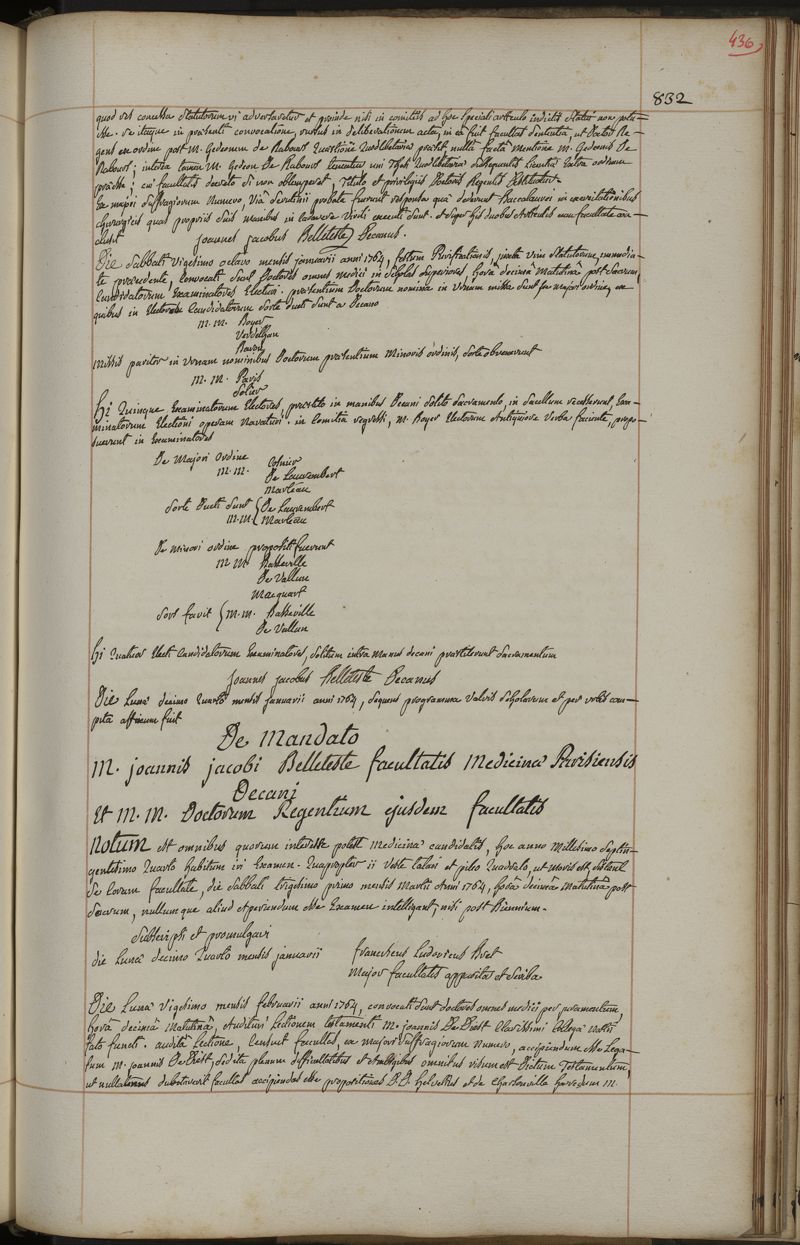 436
832
quod est concessa statutorum vi adversaretur et proinde nisi in comitiis ad hoc speciali articulo indictis statui non potu=
isse. se itaque in præsenti convocatione, rursus in deliberationem acta, in ea fuit facultas sententia, ut Doctor Re-
gens ex ordine post M. Gedeonem de Rabours quæstioni Quodlibetariæ præsit, nulla facta mentione M. Gedeonis De
Rabours; interea tamen M. Gedeon De Rabours teneatur uni Thesi Quodlibetariæ subsequentis extra ordinem
præesse; cui facultatis decreto si non obtemperet, titulo et privilegiis Doctoris Regentis
Ex majori suffragiorum numero, viâ scrutinii probata fuerunt responsa quæ dederunt Baccalaurei in exercitationibus
chirurgicis quas propriis suis manibus in cadavere virili executi sunt. et super his duobus articulis cum facultate con-
clusit
Joannes Jacobus Belleteste Decanus.
Die sabbati vigesimo octavo mensis januarii anni 1764, festum Purificationis, juxta vim statutorum, immedia-
te præcedente, convocati sunt Doctores omnes medici in scholas superiores, hora decima matutina post sacrum,
Candidatorum Examinatores Electuri. præsentium Doctorum nomina in urnam missa sunt pro majori ordine, ex
quibus in Electores Candidatorum sorte ducti sunt a Decano
M. M. Boyer
Verdelhan
Baron
Missis pariter in urnam nominibus Doctorum præsentium Minoris ordinis, sorte obvenerunt
M. M. Paris
Solier
Hi Quinque Examinatorum Electores, præstito in manibus Decani solito sacramento, in sacellum secesserunt, Exa-
minatorum Electioni operam navaturi. in comitia regressi, M. Boyer Electorum Antiquiore verba faciente, propo-
suerunt in Examinatores
De Majori ordine
M. M. Cosnier
De Laurembert
Marteau
Sorte Ducti sunt { De Laurembert
M. M. { Marteau
De minori ordine propositi fuerunt
M M. Basseville
De Vallun
Macquart
Sors favit { M. M. Basseville
De Vallun
Hi Quatuor Electi Candidatorum Examinatores, solitum intra manus decani præstiterunt sacramentum
Joannes Jacobus Belleteste Decanus
Die Lunæ decimo Quarto mensis januarii anni 1764, sequens programma valvis scholarum et per urbis com-
pita affixum fuit
De Mandato
M. Joannis Jacobi Belleteste facultatis Medicinæ Parisiensis
Decani
Et M. M. Doctorum Regentium ejusdem facultatis
Notum est omnibus quorum interesse potest Medicinæ candidatis, hoc anno Millesimo septin-
gentesimo Quarto habitum iri Examen. Quapropter ii veste talari et pileo Quadrato, ut moris est, sistent
se coram facultate, die sabbati trigesimo primo mensis Martii Anni 1764, horâ decimâ Matutinâ post
sacrum, nullumque aliud aperiundum esse Examen intelligant, nisi post Biennium.
Subscripsi et promulgavi
die Lunæ decimo Quarto mensis januarii
Franciscus Ludovicus
Major facultatis apparitor et scriba
Die Lunæ vigesimo mensis februarii anni 1764, convocati sunt doctores omnes medici per juramentum,
horâ decimâ Matutinâ, audituri Lectionem testamenti M. Joannis De Diest clarissimi collegæ nostri
fato functi. auditâ Lectione, censuit facultas, ex majori suffragiorum numero, accipiendum esse Lega-
tum M. Joannis De Diest, sed ita plenum difficultatibus et ambagibus omnibus visum est Dictum Testamentum,
ut dubitaverit facultas accipiendas esse propositiones D. D. Helvetius et de Charleville hæredum M.